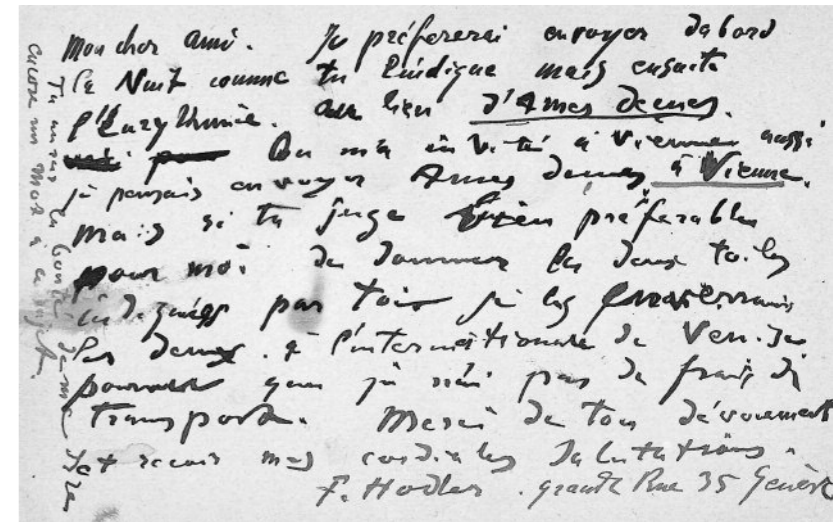 Mon cher ami. Je préfererai envoyer dabord
la Nuit comme tu l'indique mais ensuite
l'Eurythmie. au lieu d'Ames decues.
On m'a invité à Vienne aussi
je pensais envoyer Ames decues à Vienne.
Mais si tu juge bien préférable
pour moi de donner les deux toiles
indiquées par toi je les enverrais
les deux. à l'internationale de Venise
pourvu que je n'ai pas de frais de
transport. Merci de ton dévouement
et recois mes cordiales Salutations.
F. Hodler. grande Rue 35 Genève
Tu auras la bonté de me dire
encore un mot à ce sujet.